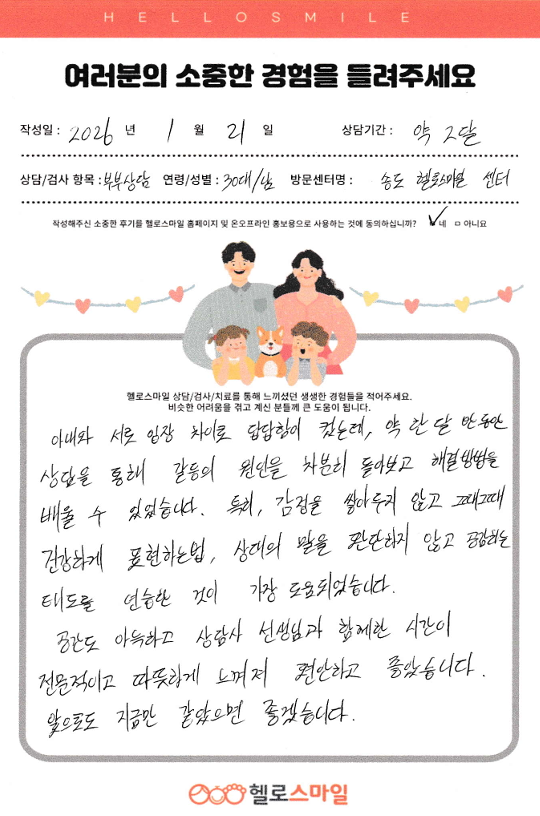 HELLOSMILE
여러분의 소중한 경험을 들려주세요
작성일 : 2026 년 1 월 21 일 상담기간 : 약 2달
상담/검사 항목 : 부부상담 연령/성별 : 30대/남 방문센터명 : 송도 헬로스마일 센터
작성해주신 소중한 후기를 헬로스마일 홈페이지 및 온오프라인 홍보용으로 사용하는 것에 동의하십니까? ✓네 ㅁ아니요
헬로스마일 상담/검사/치료를 통해 느끼셨던 생생한 경험들을 적어주세요.
비슷한 어려움을 겪고 계신 분들께 큰 도움이 됩니다.
아내와 서로 입장 차이로 답답함이 컸는데, 약 한 달 반 동안
상담을 통해 갈등의 원인을 차분히 돌아보고 해결방법을
배울 수 있었습니다. 특히, 감정을 쌓아두지 않고 그때그때
건강하게 표현하는법, 상대의 말을 판단하지 않고 공감하는
태도를 연습한 것이 가장 도움되었습니다.
공간도 아늑하고 상담사 선생님과 함께한 시간이
전문적이고 따뜻하게 느껴져 편안하고 좋았습니다.
앞으로도 지금만 같았으면 좋겠습니다.
헬로스마일